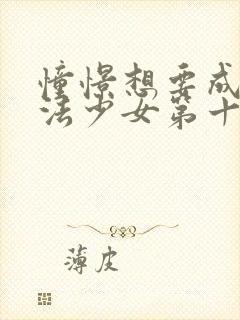 憧憬想要成
法少女第十
薄皮